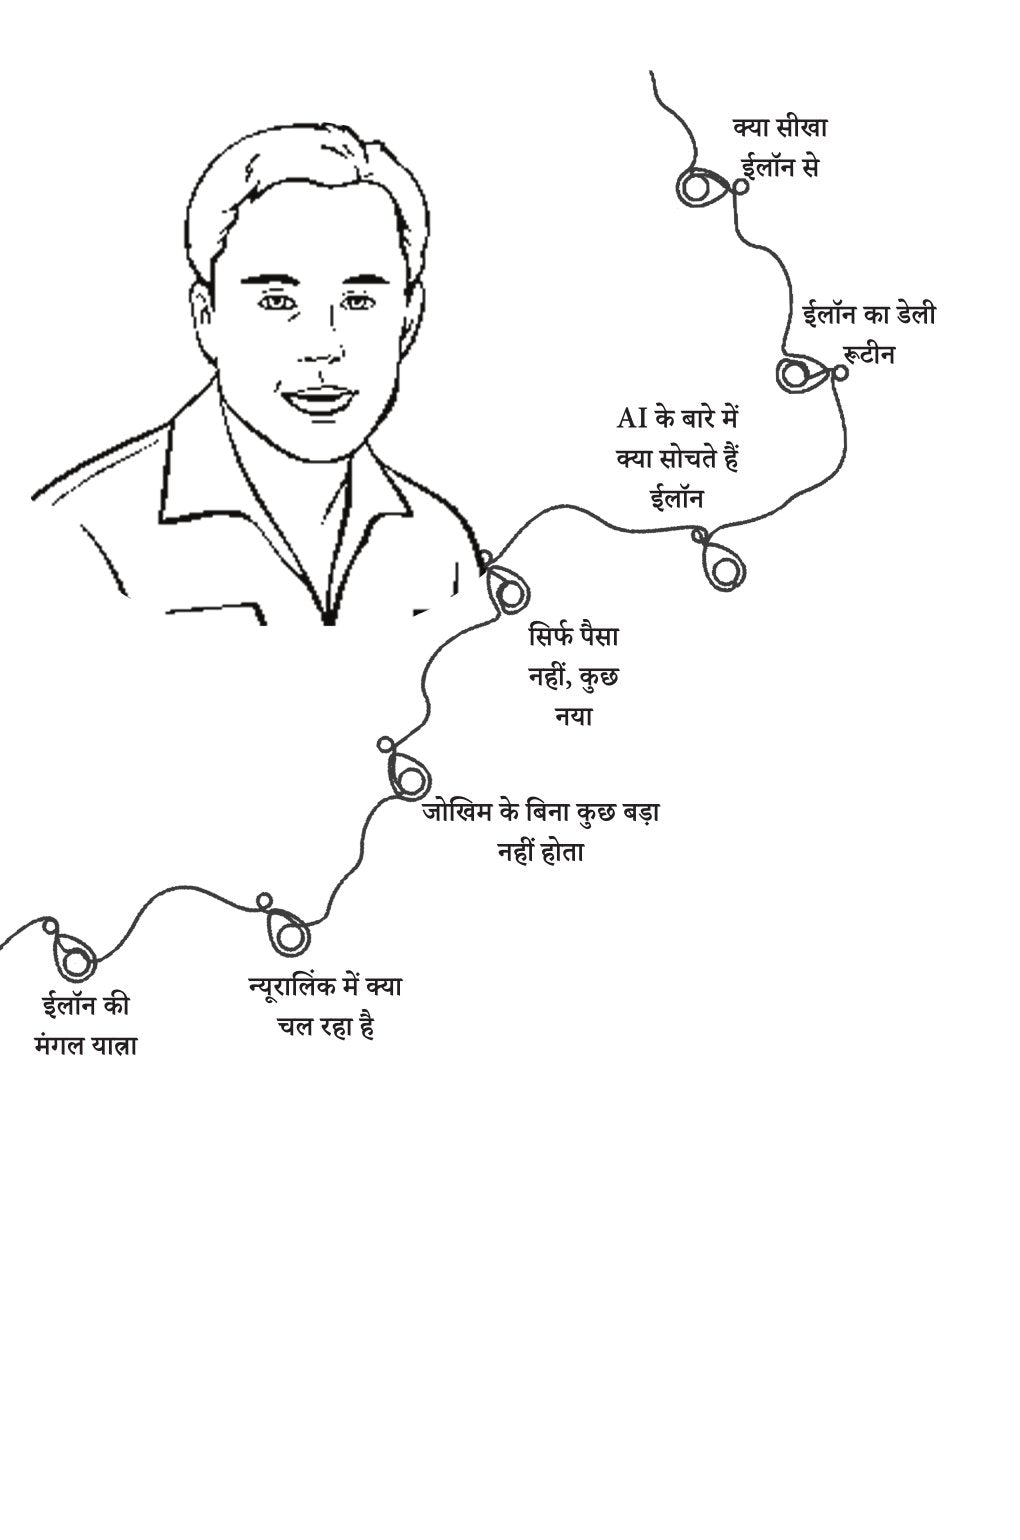 क्या सीखा
ईलॉन से
ईलॉन का डेली
रूटीन
AI के बारे में
क्या सोचते हैं
ईलॉन
सिर्फ पैसा
नहीं, कुछ
नया
जोखिम के बिना कुछ बड़ा
नहीं होता
न्यूरालिंक में क्या
चल रहा है
ईलॉन की
मंगल यात्रा